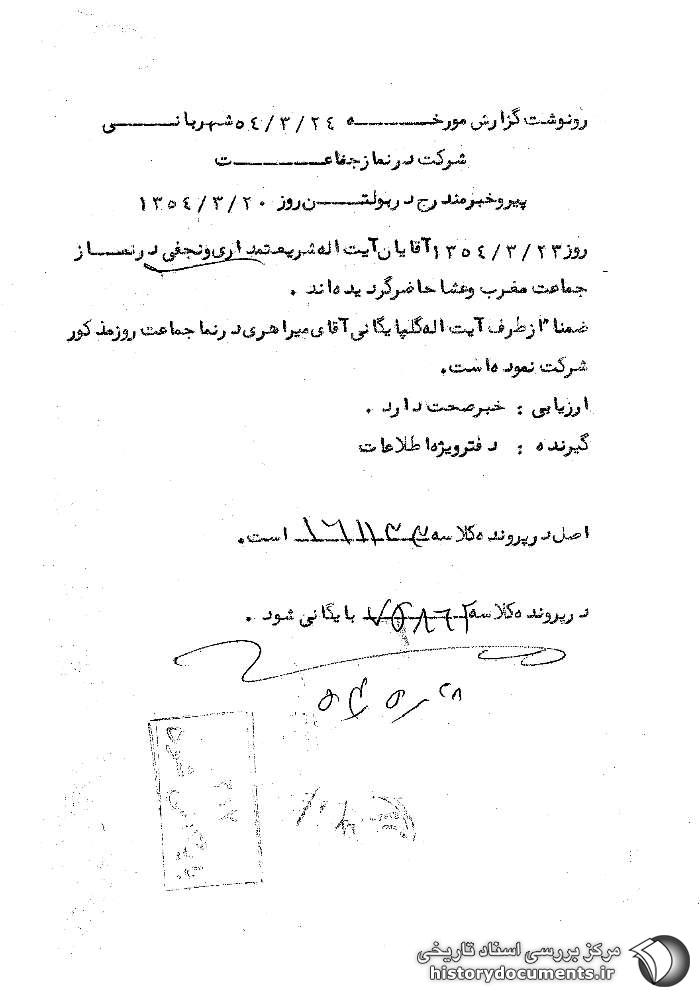 رونوشت گزارش مورخه ۵۴/۳/۲۴ شهربانی
شرکت در نماز جماعت
پیرو خبر مندرج در بولتن روز ۱۳۵۴/۳/۲۰
روز ۱۳۵۴/۳/۲۳ آقایان آیت اله شریعتمداری و نجفی در نماز
جماعت مغرب وعشا حاضر گردیده‌اند .
ضمنا" از طرف آیت اله گلپایگانی آقای میراهری در نما جماعت روز مذکور
شرکت نموده است.
ارزیابی : خبر صحت دارد .
گیرنده : دفتر ویژه اطلاعات
اصل در پرونده کلاسه است.
در پرونده کلاسه بایگانی شود .
بایگانی شود
مرکز بررسی اسناد تاریخی
historydocuments.ir